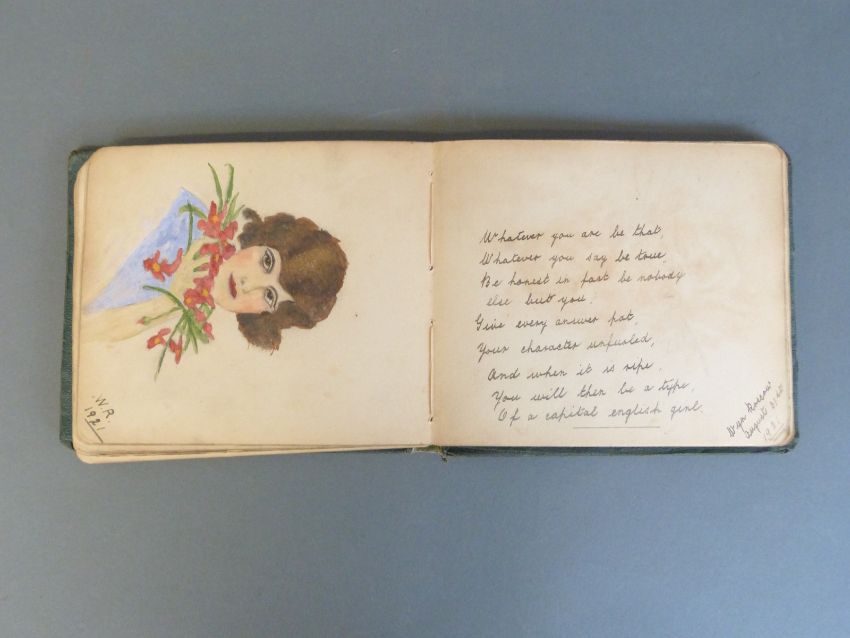 W.R.
1921
Whatever you are be that,
Whatever you say be true,
Be honest in fact be nobody
else but you.
Give every answer pat,
Your character unfurled,
And when it is ripe.
You will then be a type,
Of a capital english girl.
August